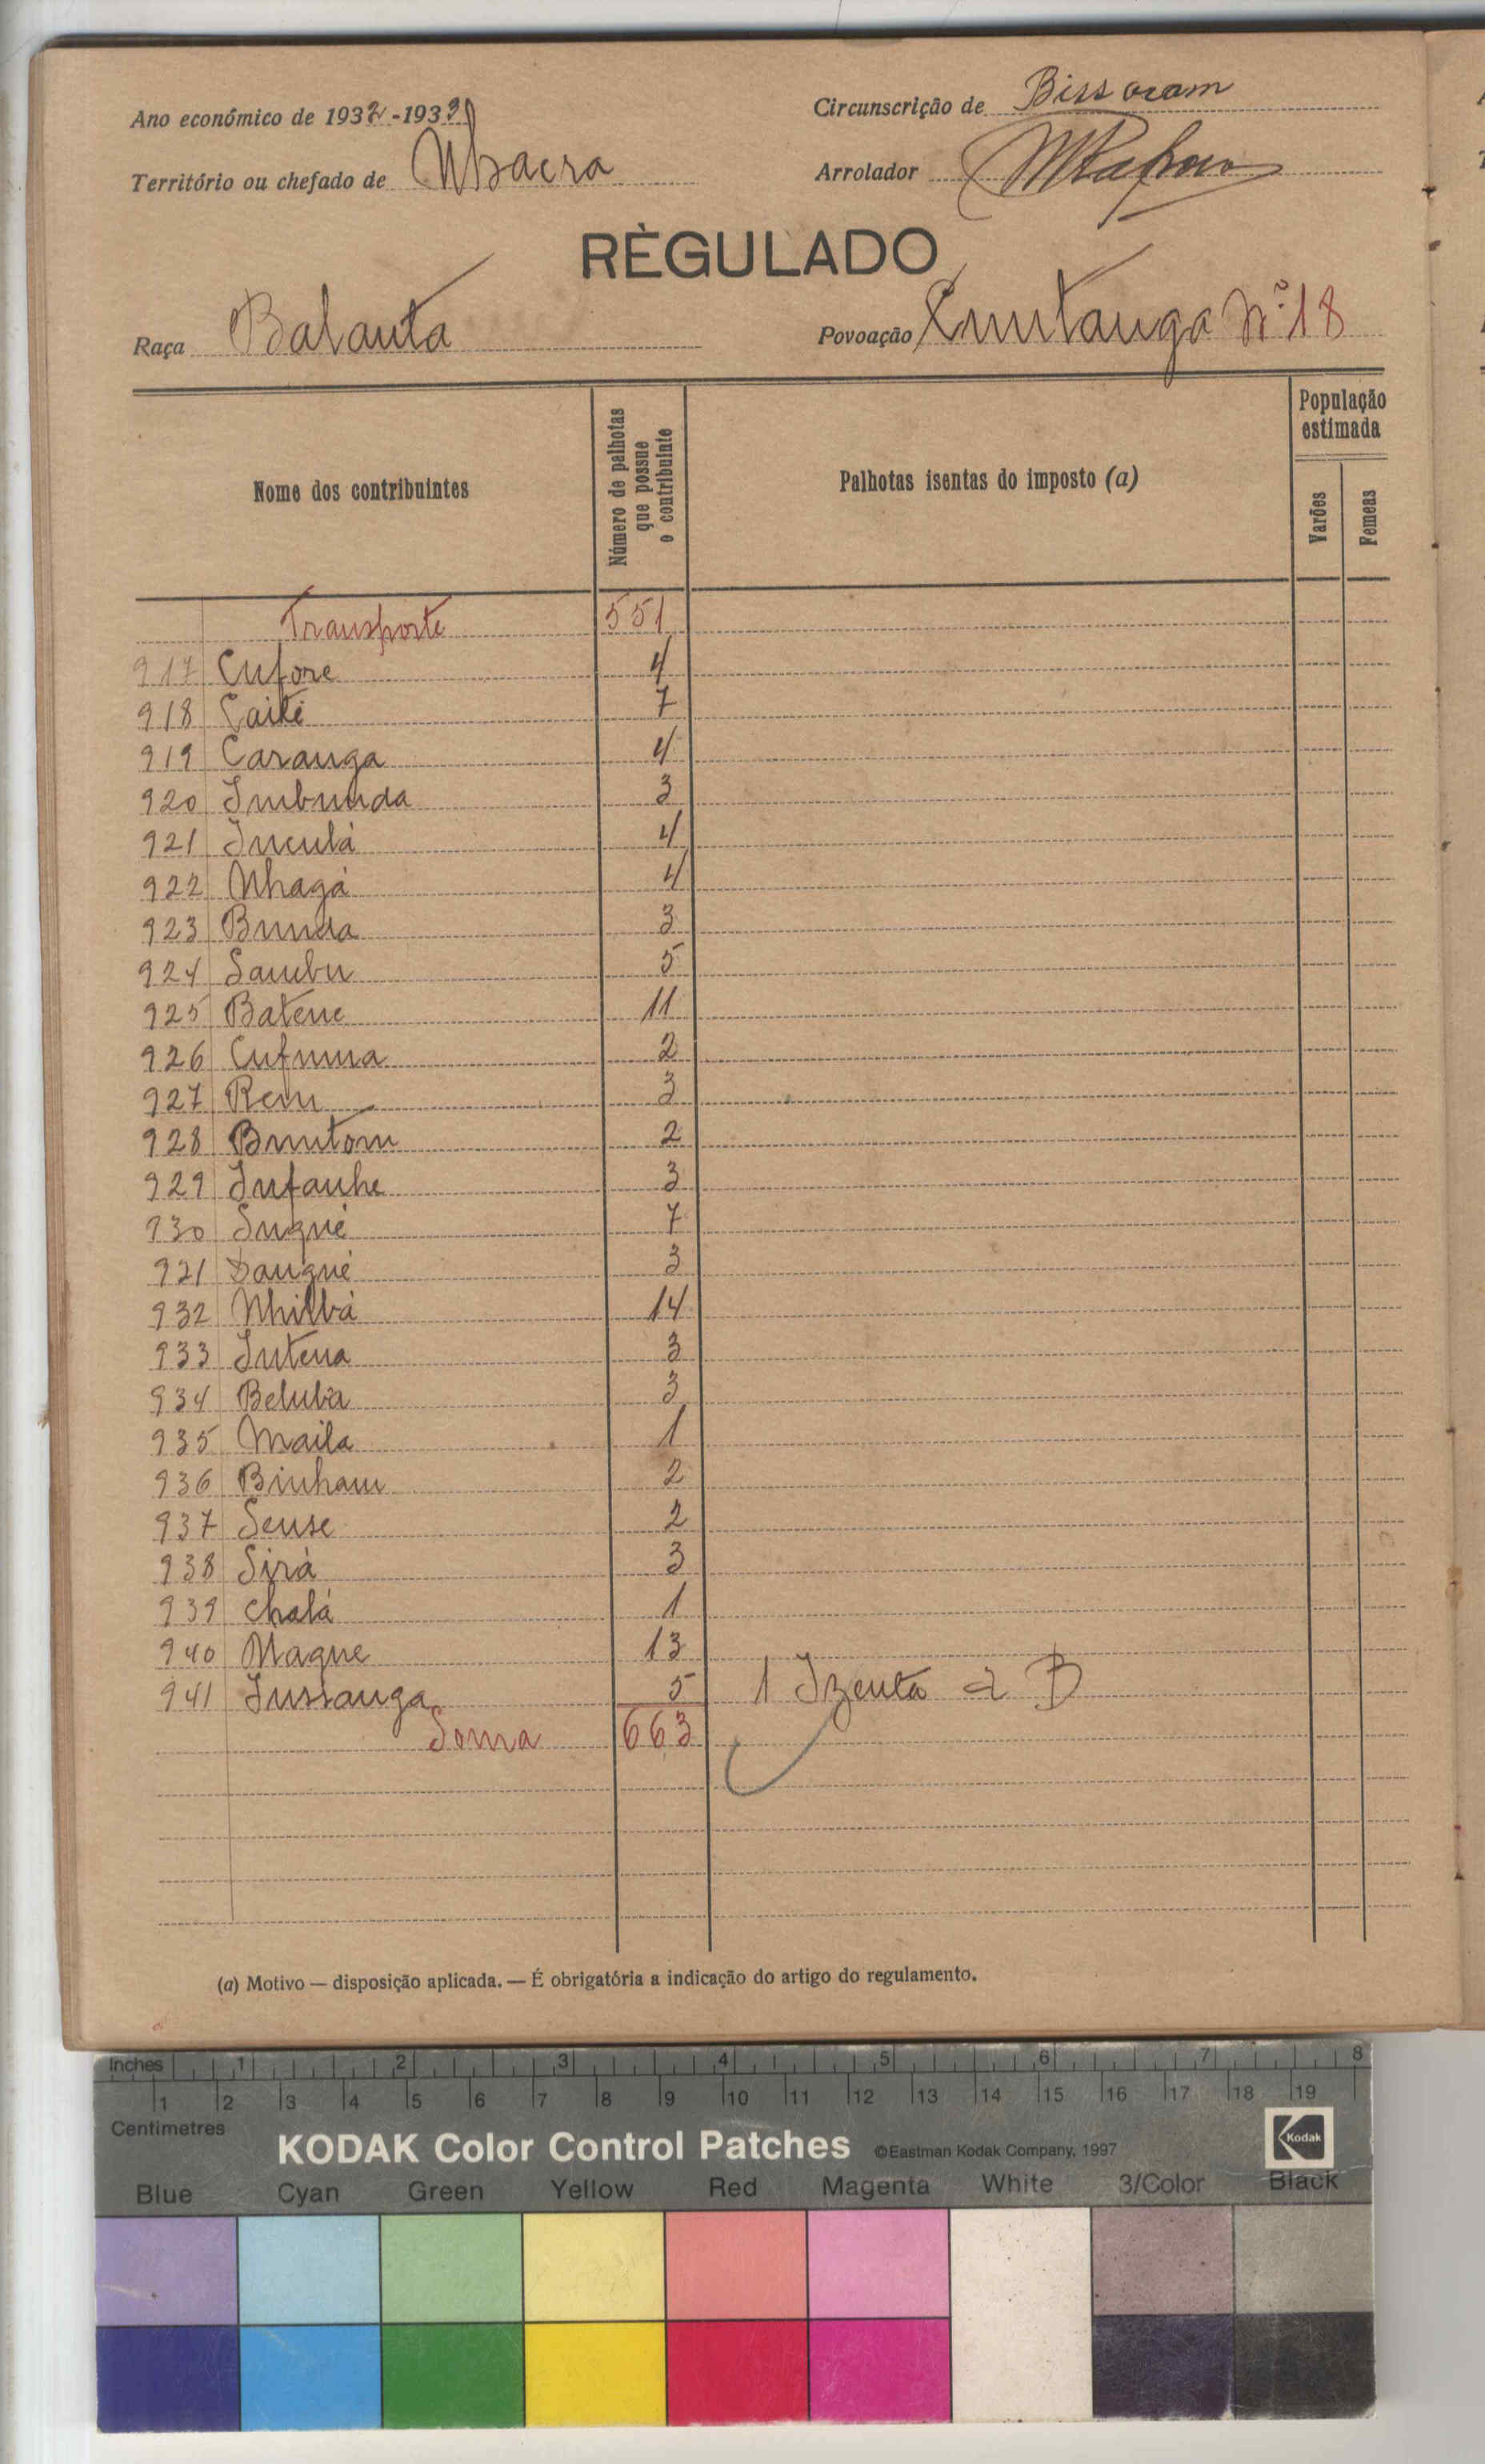 Ano económico de 1932-1933
Circunscrição de Bissoram
Território ou chefado de Nhacra
Arrolador
RÈGULADO
Raça Balanta
Povoação Cuntanga Nº 18
Nome dos contribuintes
Número de palhotas que possue o contribuinte
Palhotas isentas do imposto (a)
População estimada
Varões
Femeas
Transporte 551
917 Cufore 4
918 Caité 7
919 Caranga 4
920 Imbunda 3
921 Inculá 4
922 Nhagá 4
923 Bunda 3
924 Sambu 5
925 Batene 11
926 Cufuma 2
927 Rem 3
928 Buntom 2
929 Infanhe 3
930 Sugué 7
921 Dangué 3
932 Nhilbá 14
933 Intena 3
934 Beluba 3
935 Maila 1
936 Binham 2
937 Sense 2
938 Sirá 3
939 Chalá 1
940 Naque 13
941 Jussanga 5 1 Izenta a D
Soma 663
(a) Motivo — disposição aplicada. — É obrigatória a indicação do artigo do regulamento.
Inches 1 2 3 4 5 6 7 8
1 2 3 4 5 6 7 8 9 10 11 12 13 14 15 16 17 18 19
Centimetres
KODAK Color Control Patches ©Eastman Kodak Company, 1997
Kodak
Blue Cyan Green Yellow Red Magenta White 3/Color Black